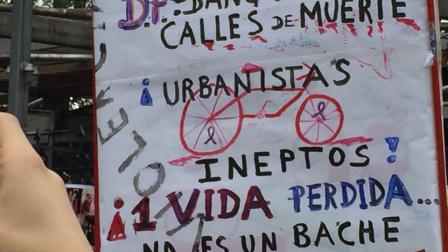 D.F.
CALLES DE MUERTE
¡URBANISTAS
INEPTOS!
¡1 VIDA PERDIDA...
NO ES UN BACHE